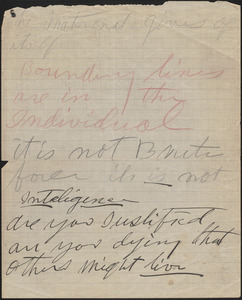 is material gives of
its of
Bounding lines
are in the
Individual
it is not Brute
force its is not
Inteligence
are you Justifred
an you dying that
others might live